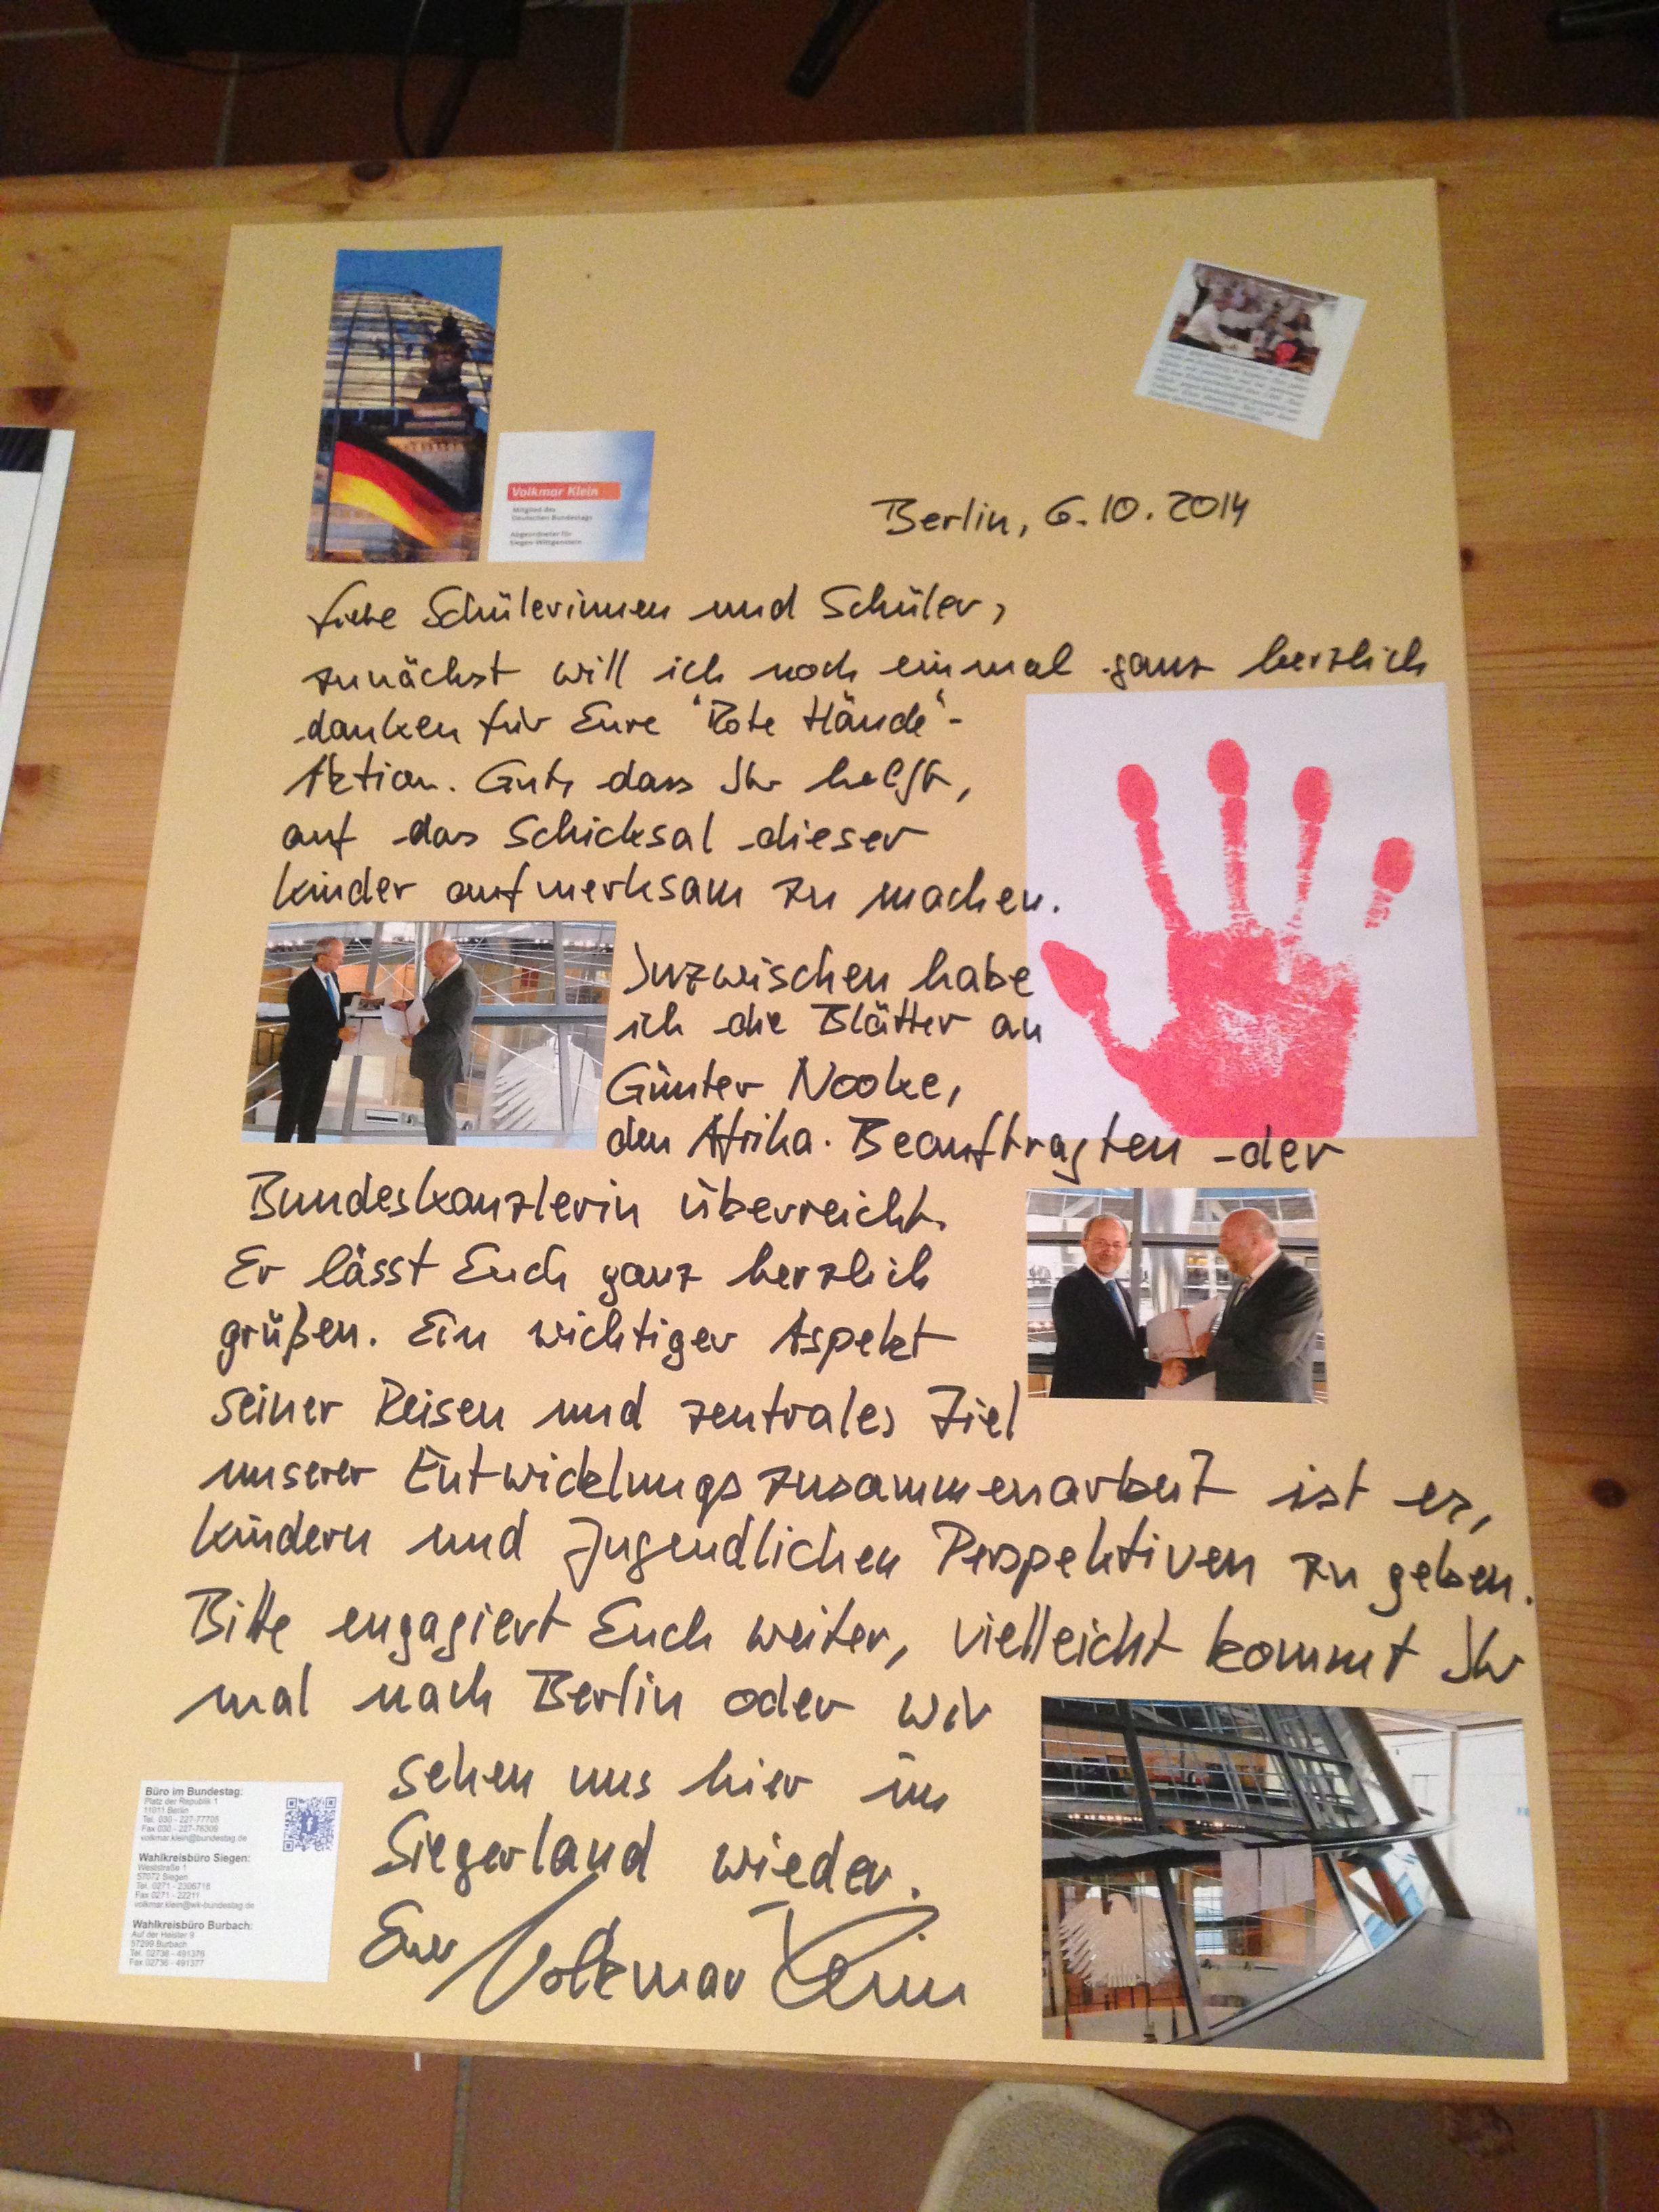 Volkmar Klein
Mitglied des
Deutschen Bundestags
Abgeordneter für
Siegen-Wittgenstein
Berlin, 6.10.2014
Liebe Schülerinnen und Schüler,
zunächst will ich noch einmal ganz herzlich
danken für Eure "Rote Hände"-
Aktion. Gut, dass Ihr helft,
auf das Schicksal dieser
Kinder aufmerksam zu machen.
Inzwischen habe
ich die Blätter an
Günter Nooke,
den Afrika-Beauftragten der
Bundeskanzlerin überreicht.
Er lässt Euch ganz herzlich
grüßen. Ein wichtiger Aspekt
seiner Reisen und zentrales Ziel
unserer Entwicklungszusammenarbeit ist es,
Kindern und Jugendlichen Perspektiven zu geben.
Bitte engagiert Euch weiter, vielleicht kommt Ihr
mal nach Berlin oder wir
sehen uns hier im
Siegerland wieder.
Euer Volkmar Klein
Büro im Bundestag:
Platz der Republik 1
11011 Berlin
Tel. 030 - 227-77705
Fax 030 - 227-76309
volkmar.klein@bundestag.de
Wahlkreisbüro Siegen:
Weststraße 1
57072 Siegen
Tel. 0271 - 2306718
Fax 0271 - 22211
volkmar.klein@wk-bundestag.de
Wahlkreisbüro Burbach:
Auf der Heister 9
57299 Burbach
Tel. 02736 - 491376
Fax 02736 - 491377